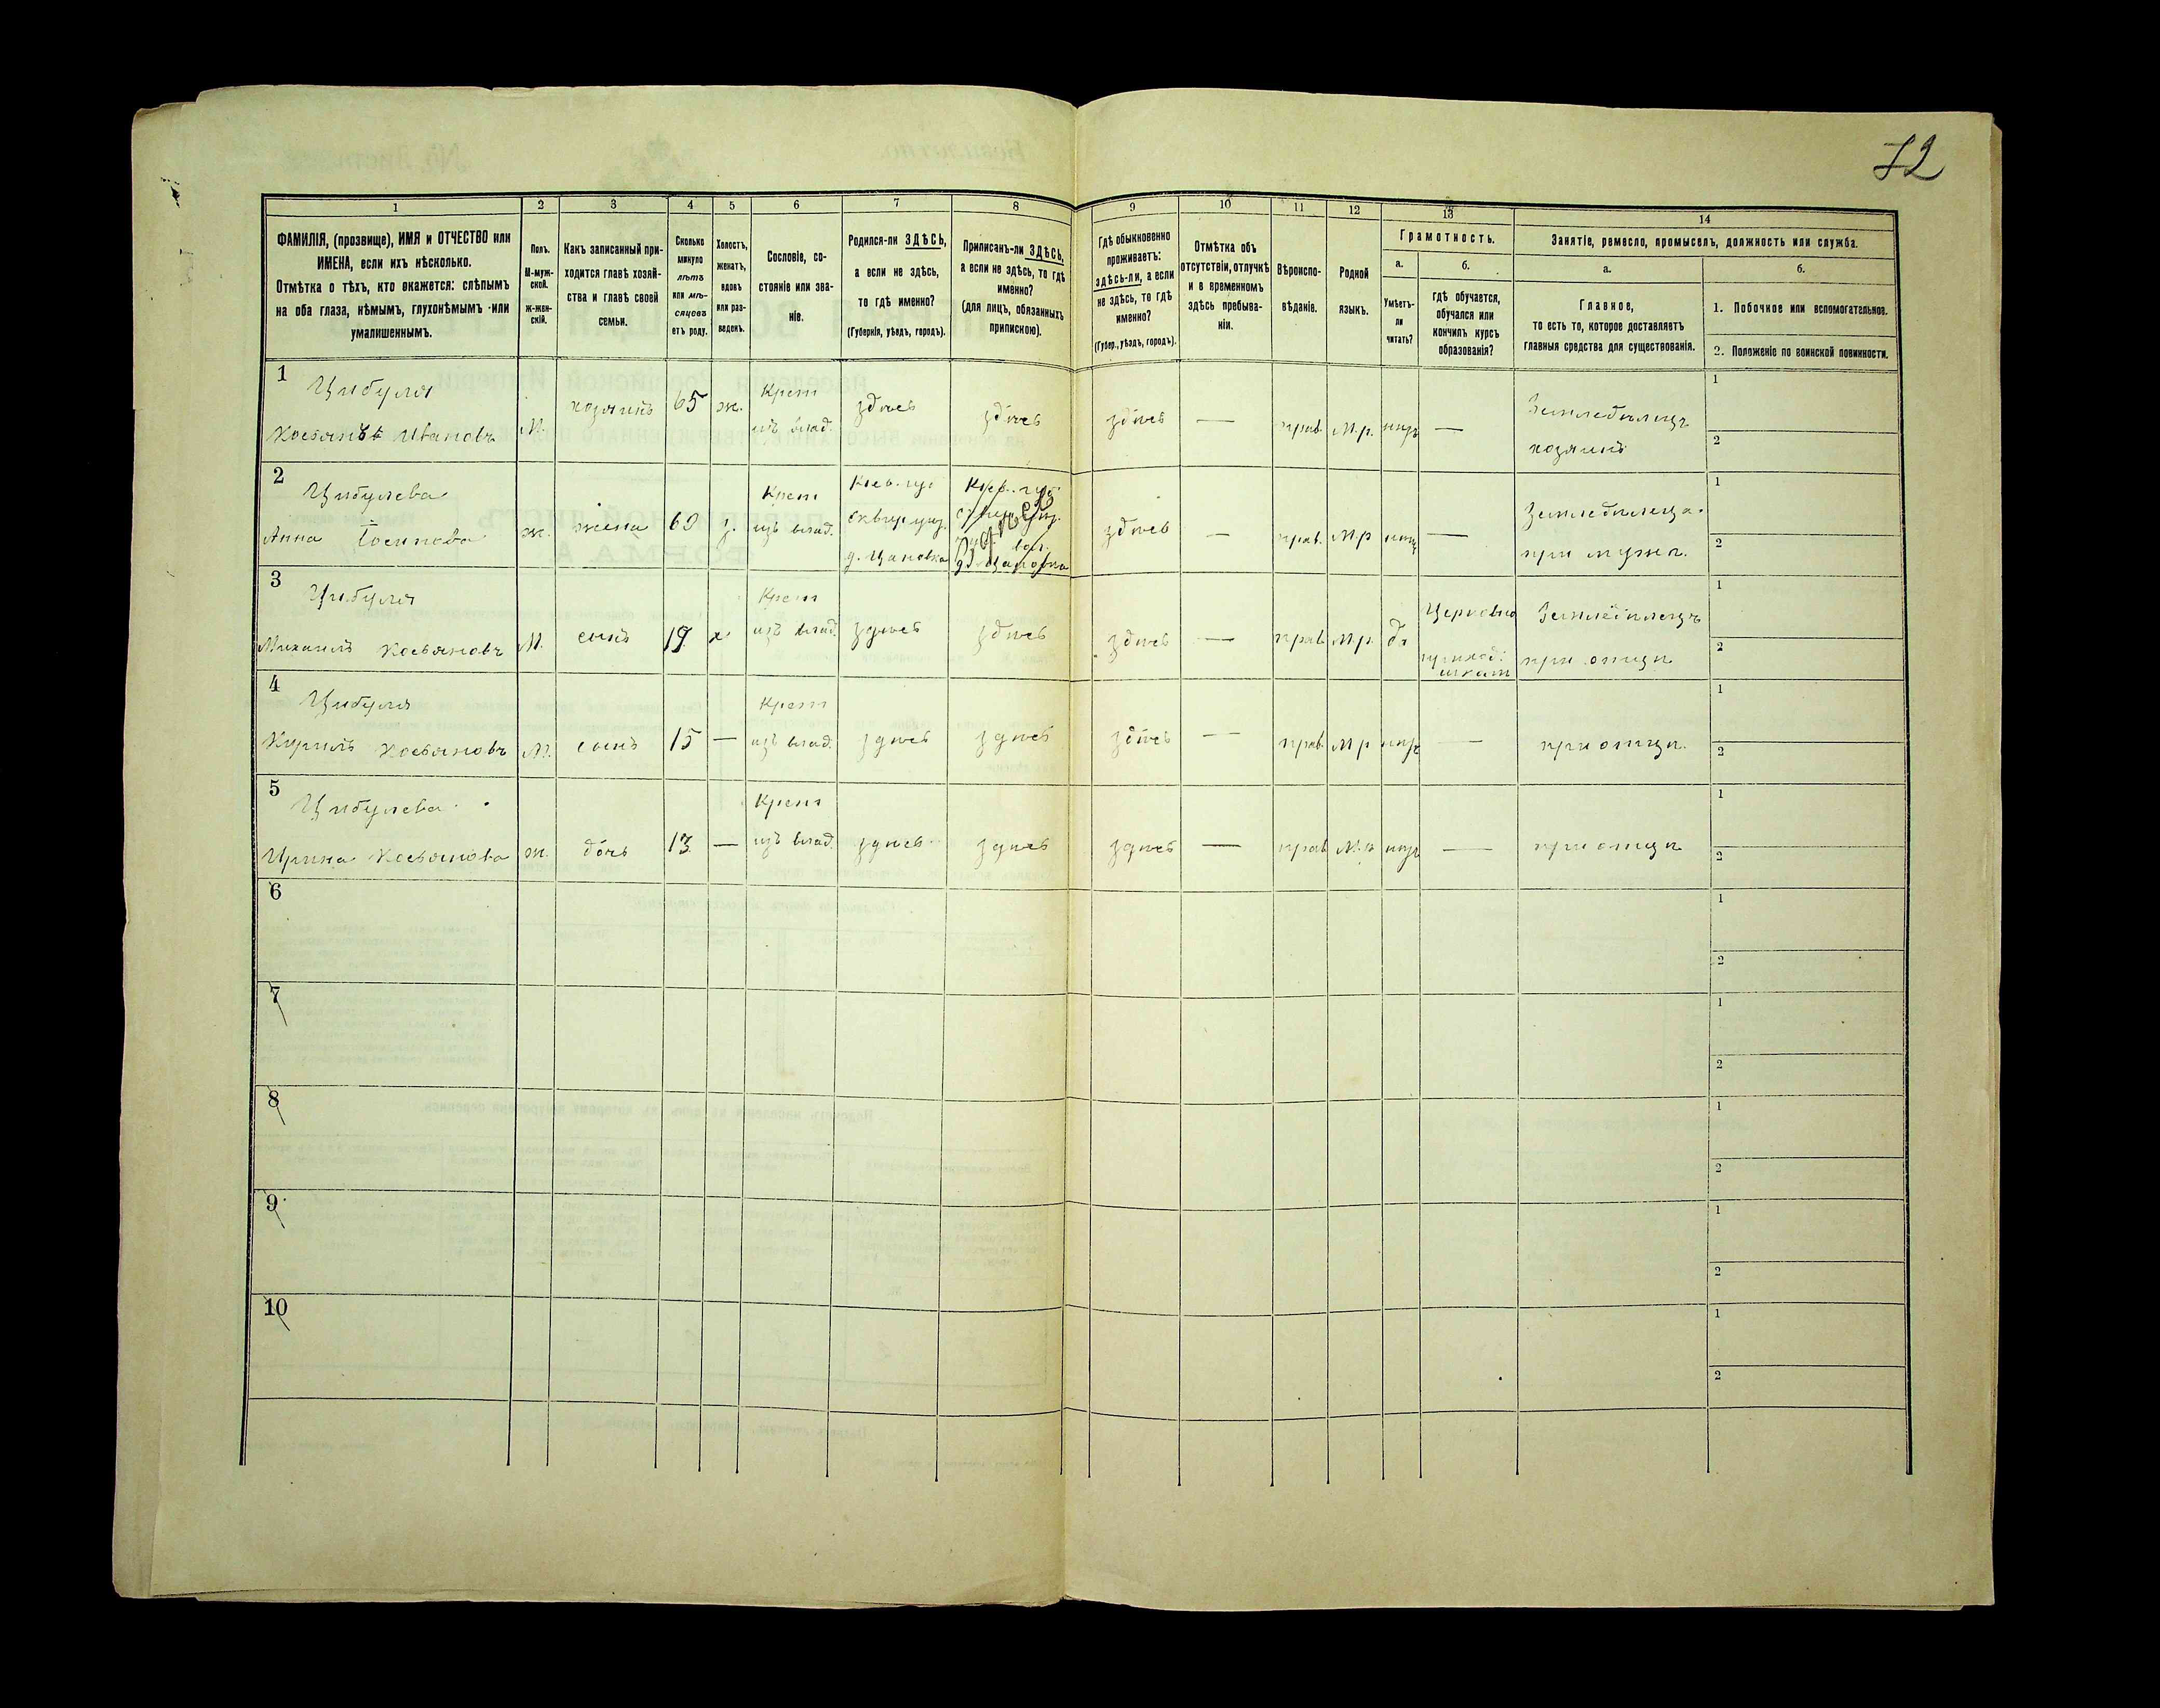 72
1 2 3 4 5 6 7 8 9 10 11 12 13 14
ФАМИЛІЯ, (прозвище), ИМЯ и ОТЧЕСТВО или
ИМЕНА, если ихъ нѣсколько.
Отмѣтка о тѣхъ, кто окажется: слѣпымъ
на оба глаза, нѣмымъ, глухонѣмымъ или
умалишеннымъ.
Полъ.
М-муж-
ской.
Ж-жен-
скій.
Какъ записанный при-
ходится главѣ хозяй-
ства и главѣ своей
семьи.
Сколько
минуло
лѣтъ
или мѣ-
сяцевъ
отъ роду.
Холостъ,
женатъ,
вдовъ
или раз-
веденъ.
Сословіе, со-
стояніе или зва-
ніе.
Родился-ли ЗДѢСЬ,
а если не здѣсь,
то гдѣ именно?
(Губернія, уѣздъ, городъ).
Приписанъ-ли ЗДѢСЬ,
а если не здѣсь, то гдѣ
именно?
(для лицъ, обязанныхъ
припискою).
Гдѣ обыкновенно
проживаетъ:
здѣсь-ли, а если
не здѣсь, то гдѣ
именно?
(Губер., уѣздъ, городъ).
Отмѣтка объ
отсутствіи, отлучкѣ
и о временномъ
здѣсь пребыва-
ніи.
Вѣроиспо-
вѣданіе.
Родной
языкъ.
Грамотность.
а.
Умѣетъ-
ли
читать?
б.
Гдѣ обучается,
обучался или
кончилъ курсъ
образованія?
Занятіе, ремесло, промыселъ, должность или служба.
а.
Главное,
то есть то, которое доставляетъ
главныя средства для существованія.
б.
1. Побочное или вспомогательное.
2. Положеніе по воинской повинности.
1 Цибуля Крест 1
Касьянъ Ивановъ М. хозяинъ 65 ж. изъ влад. здѣсь здѣсь здѣсь — прав. М.р. — Земледѣлецъ
хозяинъ 2
2 Цибулева Крест Кіев. гу. Кіев. губ. 1
Анна ж. жена 60 з. изъ влад. Сквир. уѣз. здѣсь — прав. М.р — Земледѣлица
д. Цаповка вол. при мужѣ. 2
3 Цибуля Крест Церковно 1
Михаилъ Касьяновъ М. сынъ 19 х изъ влад. здѣсь здѣсь здѣсь — прав. М.р. да приход. Земледѣлецъ
школ при отцѣ 2
4 Цибуля Крест 1
Кирилъ Касьяновъ М. сынъ 15 — изъ влад. здѣсь здѣсь здѣсь — прав. М.р — при отцѣ. 2
5 Цибулева Крест 1
Ирина Касьянова ж. дочь 13 — изъ влад. здѣсь здѣсь здѣсь — прав М.р — при отцѣ 2
6 1
2
7 1
2
8 1
2
9 1
2
10 1
2